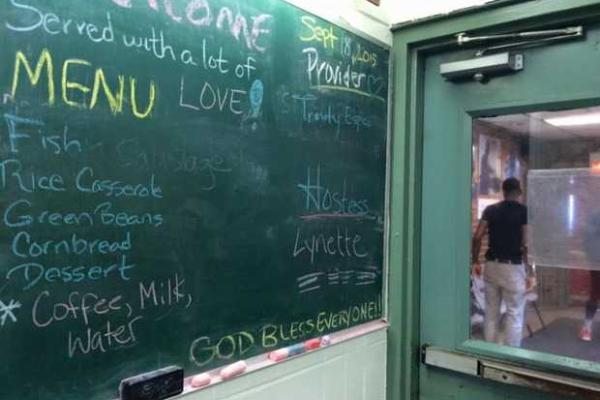 Served with a lot of
LOVE!
MENU
Fish
Rice Casserole
Green Beans
Cornbread
Dessert
* Coffee, Milk,
Water
Sept 18, 2015
Provider
Hostess
Lynette
GOD BLESS EVERYONE!!